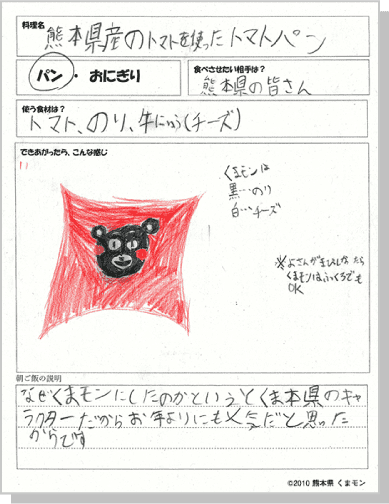 料理名
熊本県産のトマトを使ったトマトパン
パン・おにぎり
食べさせたい相手は?
熊本県の皆さん
使う食材は?
トマト、のり、牛にゅう(チーズ)
できあがったら、こんな感じ
くまモンは
黒…のり
白…チーズ
くまモンは
OK
朝ご飯の説明
なぜくまモンにしたのかというとくま本県のキャ
ラクターだからお年よりにも人気だと思った
からです
©2010 熊本県 くまモン